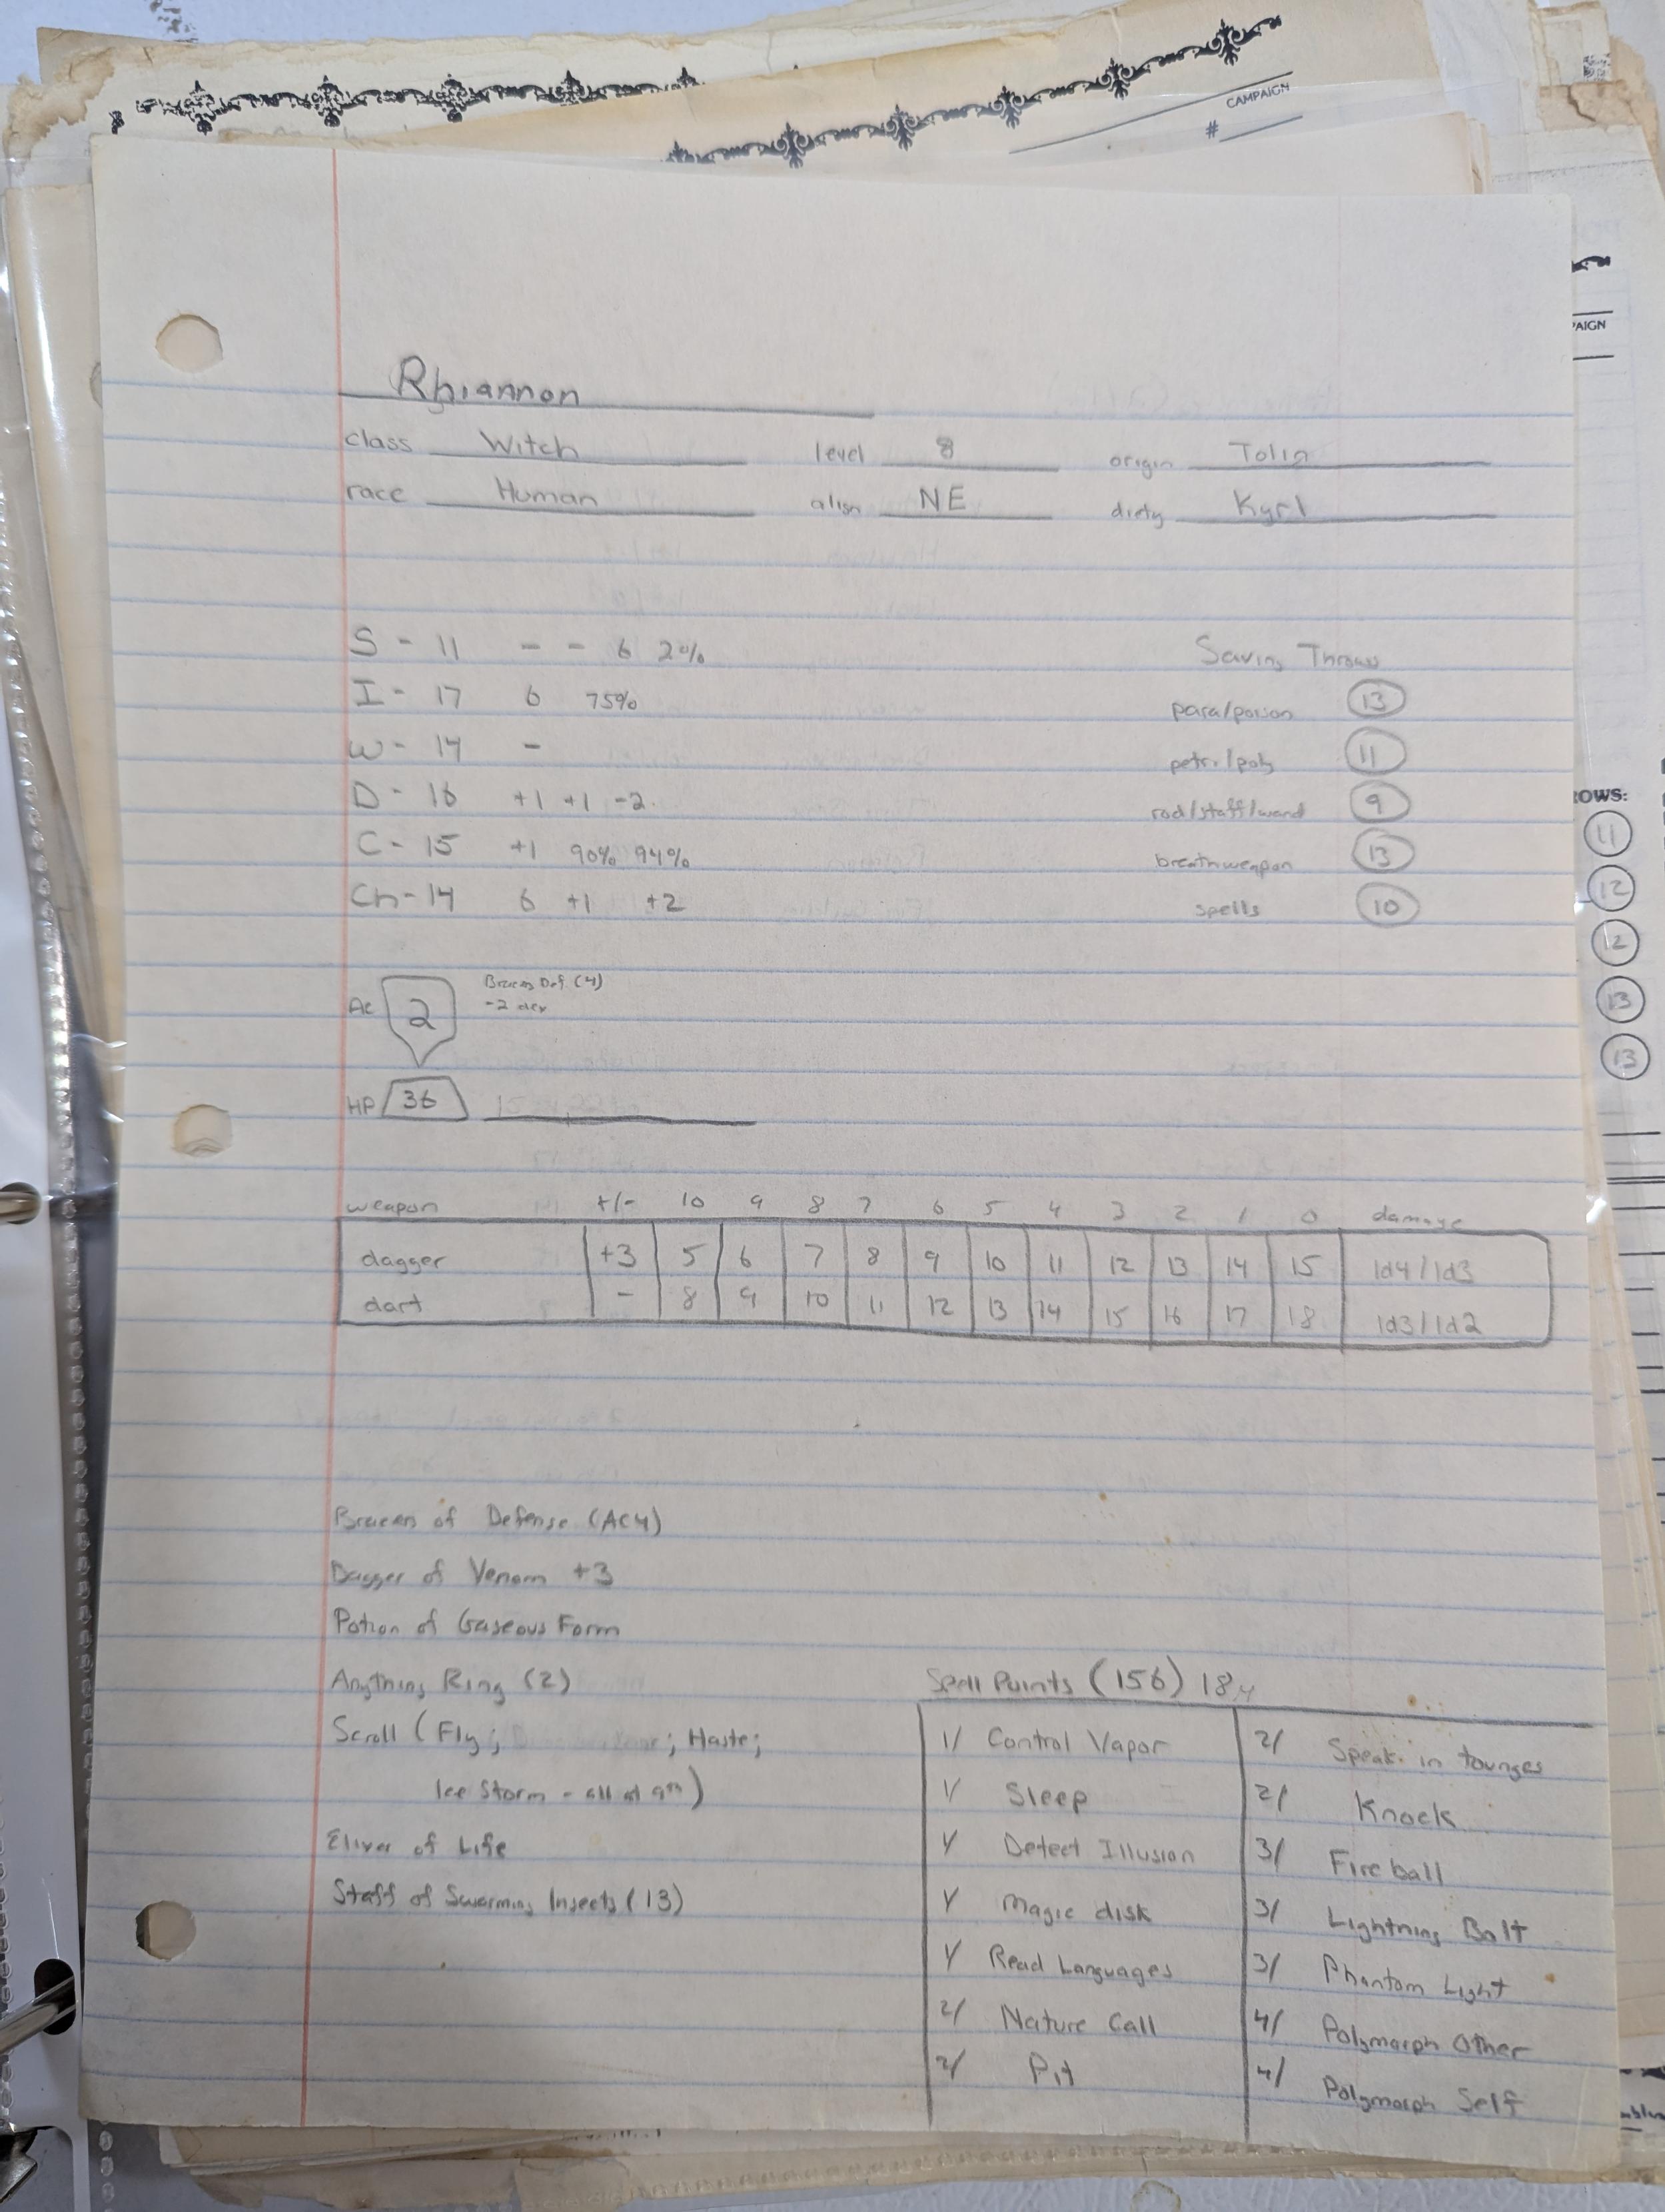 CAMPAIGN
#
PAIGN
Rhiannon
class Witch level 8 origin Tolin
race Human align NE diety Kyrl
S - 11 - - 6 2%
I - 17 6 75%
W - 14 -
D - 16 +1 +1 -2
C - 15 +1 90% 94%
Ch - 14 6 +1 +2
Saving Throws
para/poison 13
petri/poly 11
rod/staff/wand 9
breathweapon 13
spells 10
OWS:
11
12
12
13
13
AC 2 Bracers Def. (4)
-2 dex
HP 36
weapon +/- 10 9 8 7 6 5 4 3 2 1 0 damage
dagger +3 5 6 7 8 9 10 11 12 13 14 15 1d4/1d3
dart - 8 9 10 11 12 13 14 15 16 17 18 1d3/1d2
Bracers of Defense (AC4)
Dagger of Venom +3
Potion of Gaseous Form
Anything Ring (2)
Scroll (Fly; ; Haste;
Ice Storm - all at 9th)
Elixer of Life
Staff of Swarming Insects (13)
Spell Points (156)
1/ Control Vapor
1/ Sleep
1/ Detect Illusion
1/ Magic disk
1/ Read Languages
2/ Nature Call
2/ Pit
2/ Speak in tounges
2/ Knock
3/ Fireball
3/ Lightning Bolt
3/ Phantom Light
4/ Polymorph Other
4/ Polymorph Self